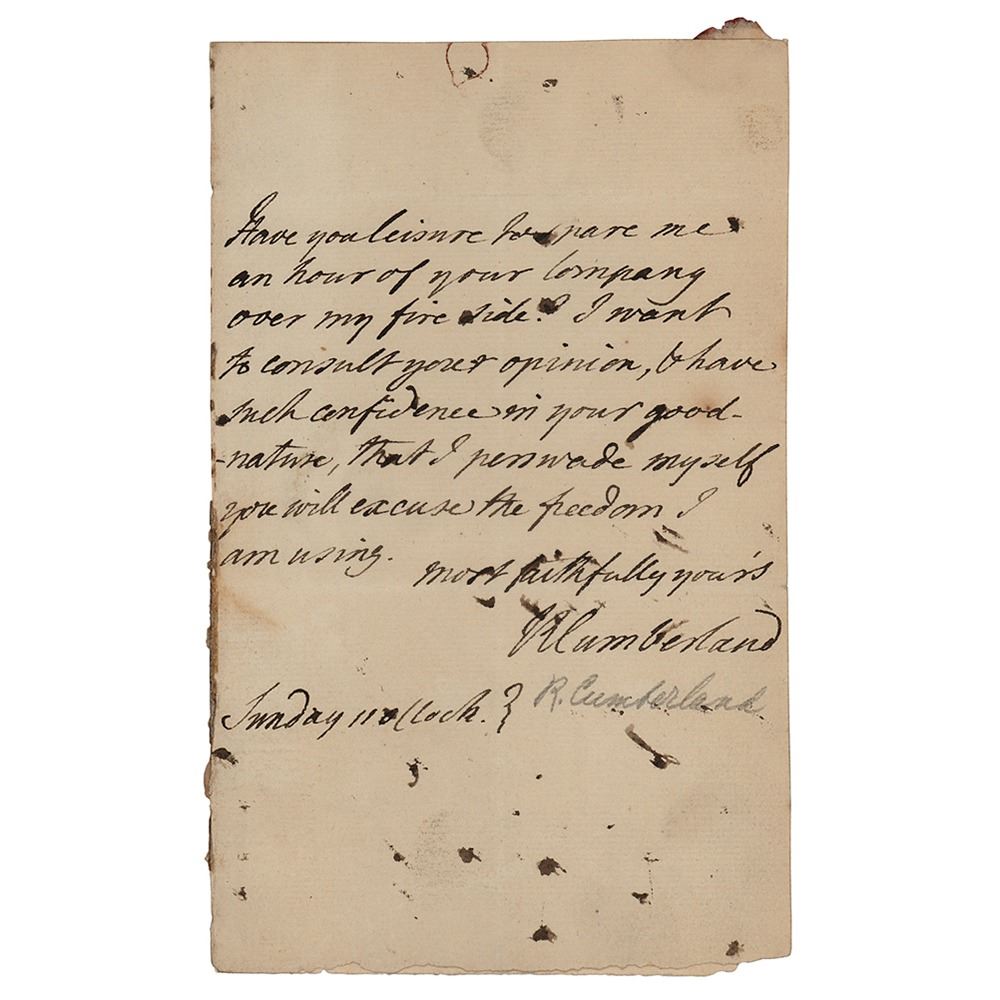 Have you leisure to spare me
an hour of your Company
over my fire side? I want
to consult your opinion, & have
such confidence in your good-
-nature, that I perswade myself
you will excuse the freedom I
am using.
most faithfully yours
RCumberland
R. Cumberland
Sunday 11 oClock. }